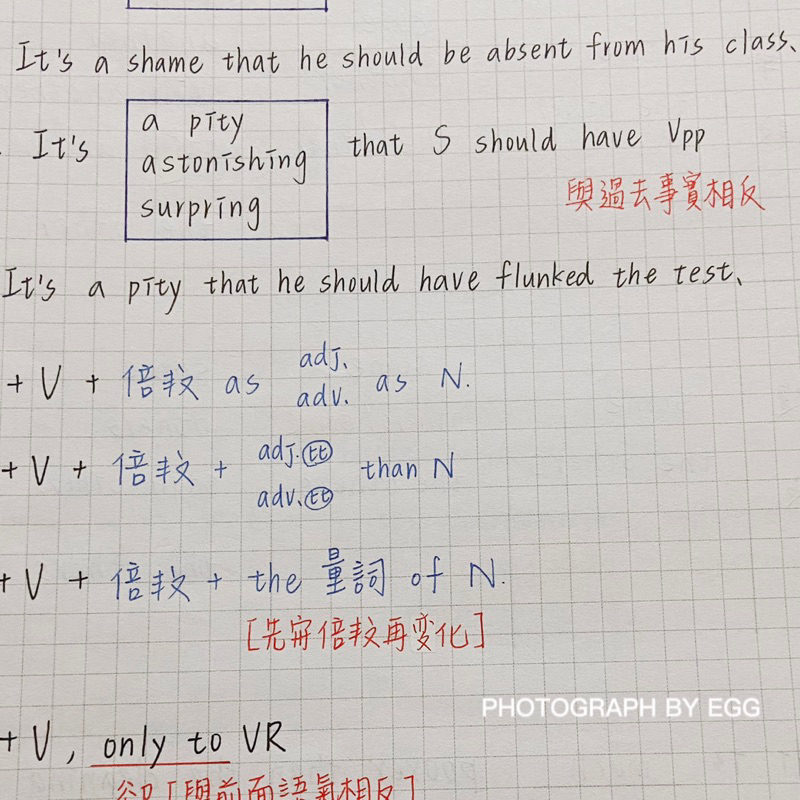 It's a shame that he should be absent from his class、
It's
a pity
astonishing
surpring
that S should have Vpp
與過去事實相反
It's a pity that he should have flunked the test、
+ V + 倍数 as adj、 as N.
adv.
+ V + 倍数 + adj.比 than N
adv、比
+ V + 倍数 + the 量詞 of N.
[先寫倍数再变化]
PHOTOGRAPH BY EGG
+ V , only to VR
卻[與前面語氣相反]